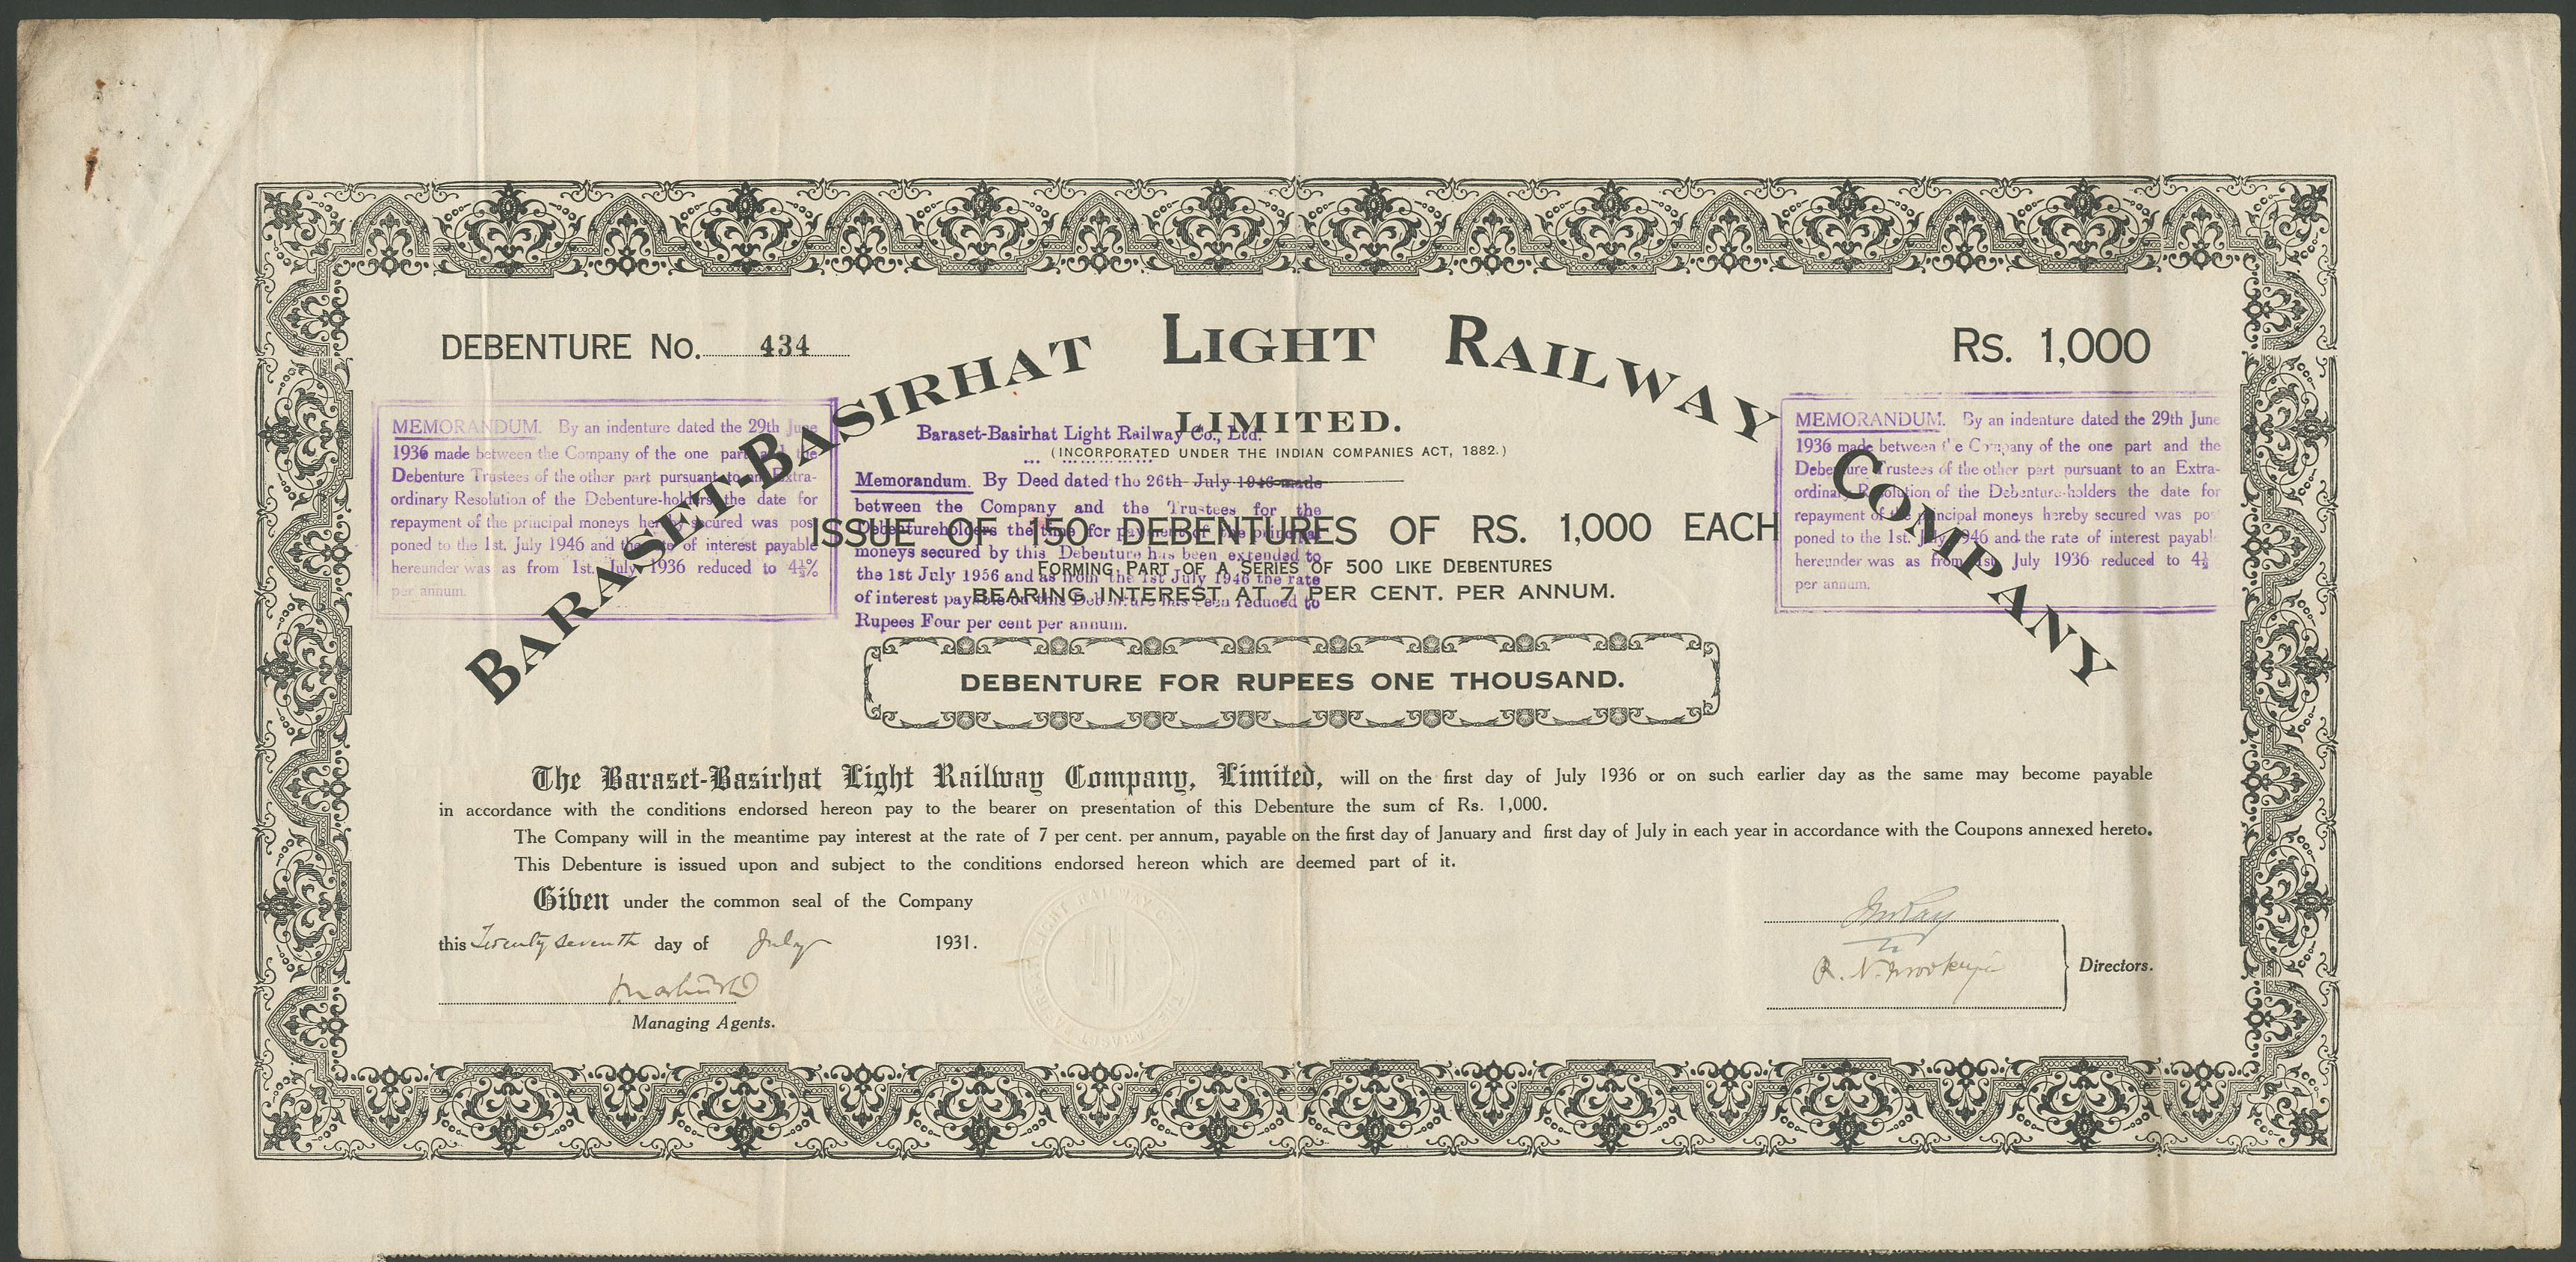 DEBENTURE No. 434
BARASET-BASIRHAT LIGHT RAILWAY COMPANY
Rs. 1,000
LIMITED.
(INCORPORATED UNDER THE INDIAN COMPANIES ACT, 1882.)
MEMORANDUM. By an indenture dated the 29th June
1936 made between the Company of the one part and the
Debenture Trustees of the other part pursuant to an Extra-
ordinary Resolution of the Debenture-holders the date for
repayment of the principal moneys hereby secured was pos
poned to the 1st. July 1946 and the rate of interest payable
hereunder was as from 1st. July 1936 reduced to 4½%
per annum.
Baraset-Basirhat Light Railway Co., Ltd.
Memorandum. By Deed dated the 26th July 1946 made
between the Company and the Trustees for the
Debentureholders the time for payment of the principal
moneys secured by this Debenture has been extended to
the 1st July 1956 and as from the 1st July 1946 the rate
of interest payable on this Debenture has been reduced to
Rupees Four per cent per annum.
MEMORANDUM. By an indenture dated the 29th June
1936 made between the Company of the one part and the
Debenture Trustees of the other part pursuant to an Extra-
ordinary Resolution of the Debenture-holders the date for
repayment of the principal moneys hereby secured was pos
poned to the 1st. July 1946 and the rate of interest payabl
hereunder was as from 1st. July 1936 reduced to 4½
per annum.
ISSUE OF 150 DEBENTURES OF RS. 1,000 EACH
FORMING PART OF A SERIES OF 500 LIKE DEBENTURES
BEARING INTEREST AT 7 PER CENT. PER ANNUM.
DEBENTURE FOR RUPEES ONE THOUSAND.
The Baraset-Basirhat Light Railway Company, Limited, will on the first day of July 1936 or on such earlier day as the same may become payable
in accordance with the conditions endorsed hereon pay to the bearer on presentation of this Debenture the sum of Rs. 1,000.
The Company will in the meantime pay interest at the rate of 7 per cent. per annum, payable on the first day of January and first day of July in each year in accordance with the Coupons annexed hereto.
This Debenture is issued upon and subject to the conditions endorsed hereon which are deemed part of it.
Given under the common seal of the Company
this Twenty seventh day of July 1931.
R. N. Mookerjee
Directors.
Managing Agents.